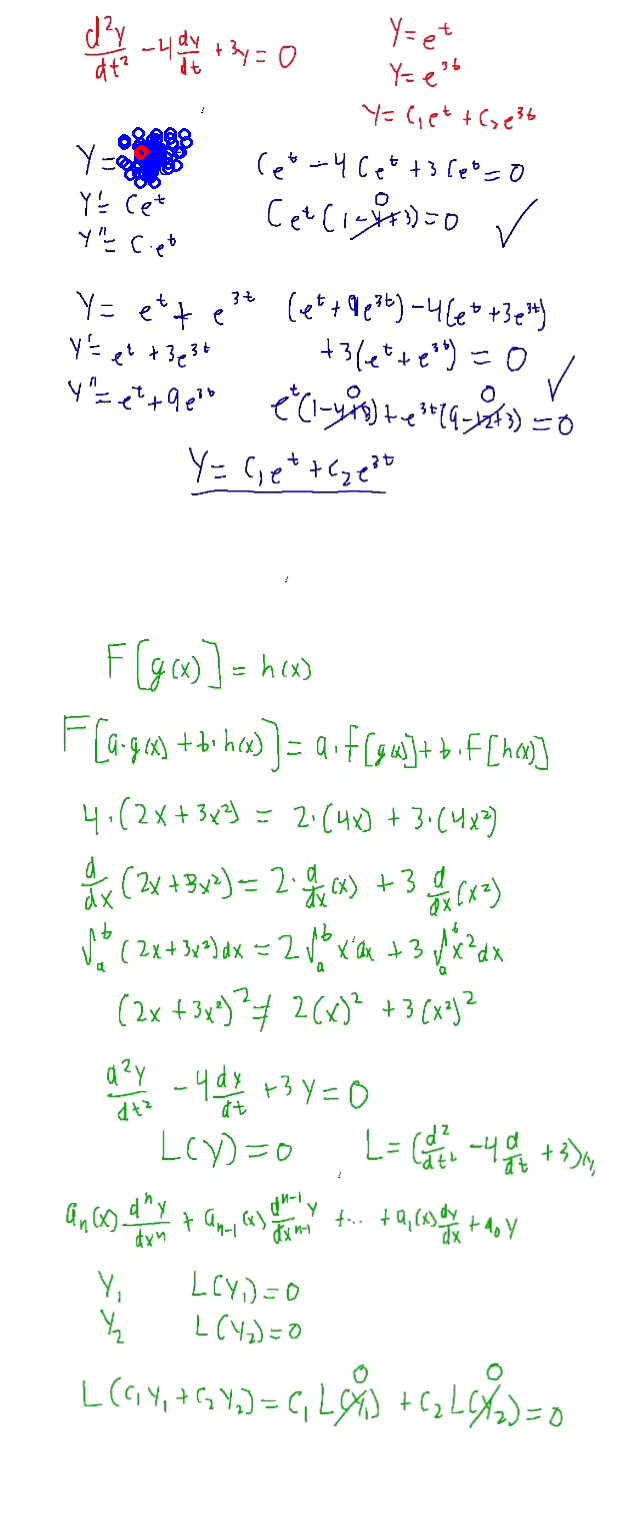 d²y/dt² - 4 dy/dt + 3y = 0
Y = e^t
Y = e^3t
Y = C₁e^t + C₂e^3t
Y =
Y' = Ce^t
Y'' = C·e^t
Ce^t - 4Ce^t + 3Ce^t = 0
Ce^t(1-4+3) = 0 ✓
0
Y = e^t + e^3t
Y' = e^t + 3e^3t
Y'' = e^t + 9e^3t
(e^t + 9e^3t) - 4(e^t + 3e^3t)
+3(e^t + e^3t) = 0 ✓
0 0
e^t(1-4+3) + e^3t(9-12+3) = 0
Y = C₁e^t + C₂e^3t
F[g(x)] = h(x)
F[a·g(x) + b·h(x)] = a·F[g(x)] + b·F[h(x)]
4·(2x + 3x²) = 2·(4x) + 3·(4x²)
d/dx (2x + 3x²) = 2·d/dx(x) + 3 d/dx(x²)
∫_a^b (2x + 3x²)dx = 2∫_a^b x dx + 3∫_a^b x²dx
(2x + 3x²)² ≠ 2(x)² + 3(x²)²
d²y/dt² - 4 dy/dt + 3y = 0
L(y) = 0 L = (d²/dt² - 4 d/dt + 3)y
a_n(x) d^n y/dx^n + a_n-1(x) d^n-1 y/dx^n-1 + ... + a₁(x) dy/dx + a₀y
Y₁ L(Y₁) = 0
Y₂ L(Y₂) = 0
0 0
L(C₁Y₁ + C₂Y₂) = C₁L(Y₁) + C₂L(Y₂) = 0